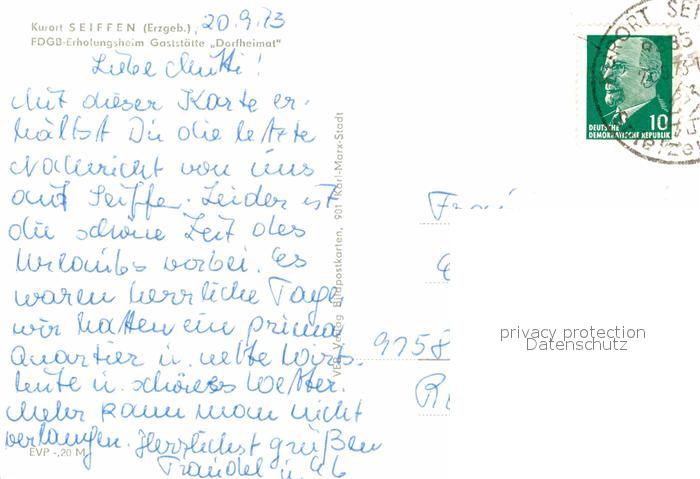 Kurort SEIFFEN (Erzgeb.), 20.9.73
FDGB-Erholungsheim Gaststätte „Dorfheimat"
Liebe Mutti!
Mit dieser Karte er-
hältst Du die letzte
Nachricht von uns
aus Seiffen. Leider ist
die schöne Zeit des
Urlaubs vorbei. Es
waren herrliche Tage
wir hatten ein prima
Quartier u. nette Wirts-
leute u. schönes Wetter.
Mehr kann man nicht
verlangen. Herzlichst grüßen
Traudel u.
EVP -,20 M
VEB Verlag Bildpostkarten, 901 Karl-Marx-Stadt
KURORT SEI
DEUTSCHE
DEMOKRATISCHE REPUBLIK
10
Frau
9158
privacy protection
Datenschutz